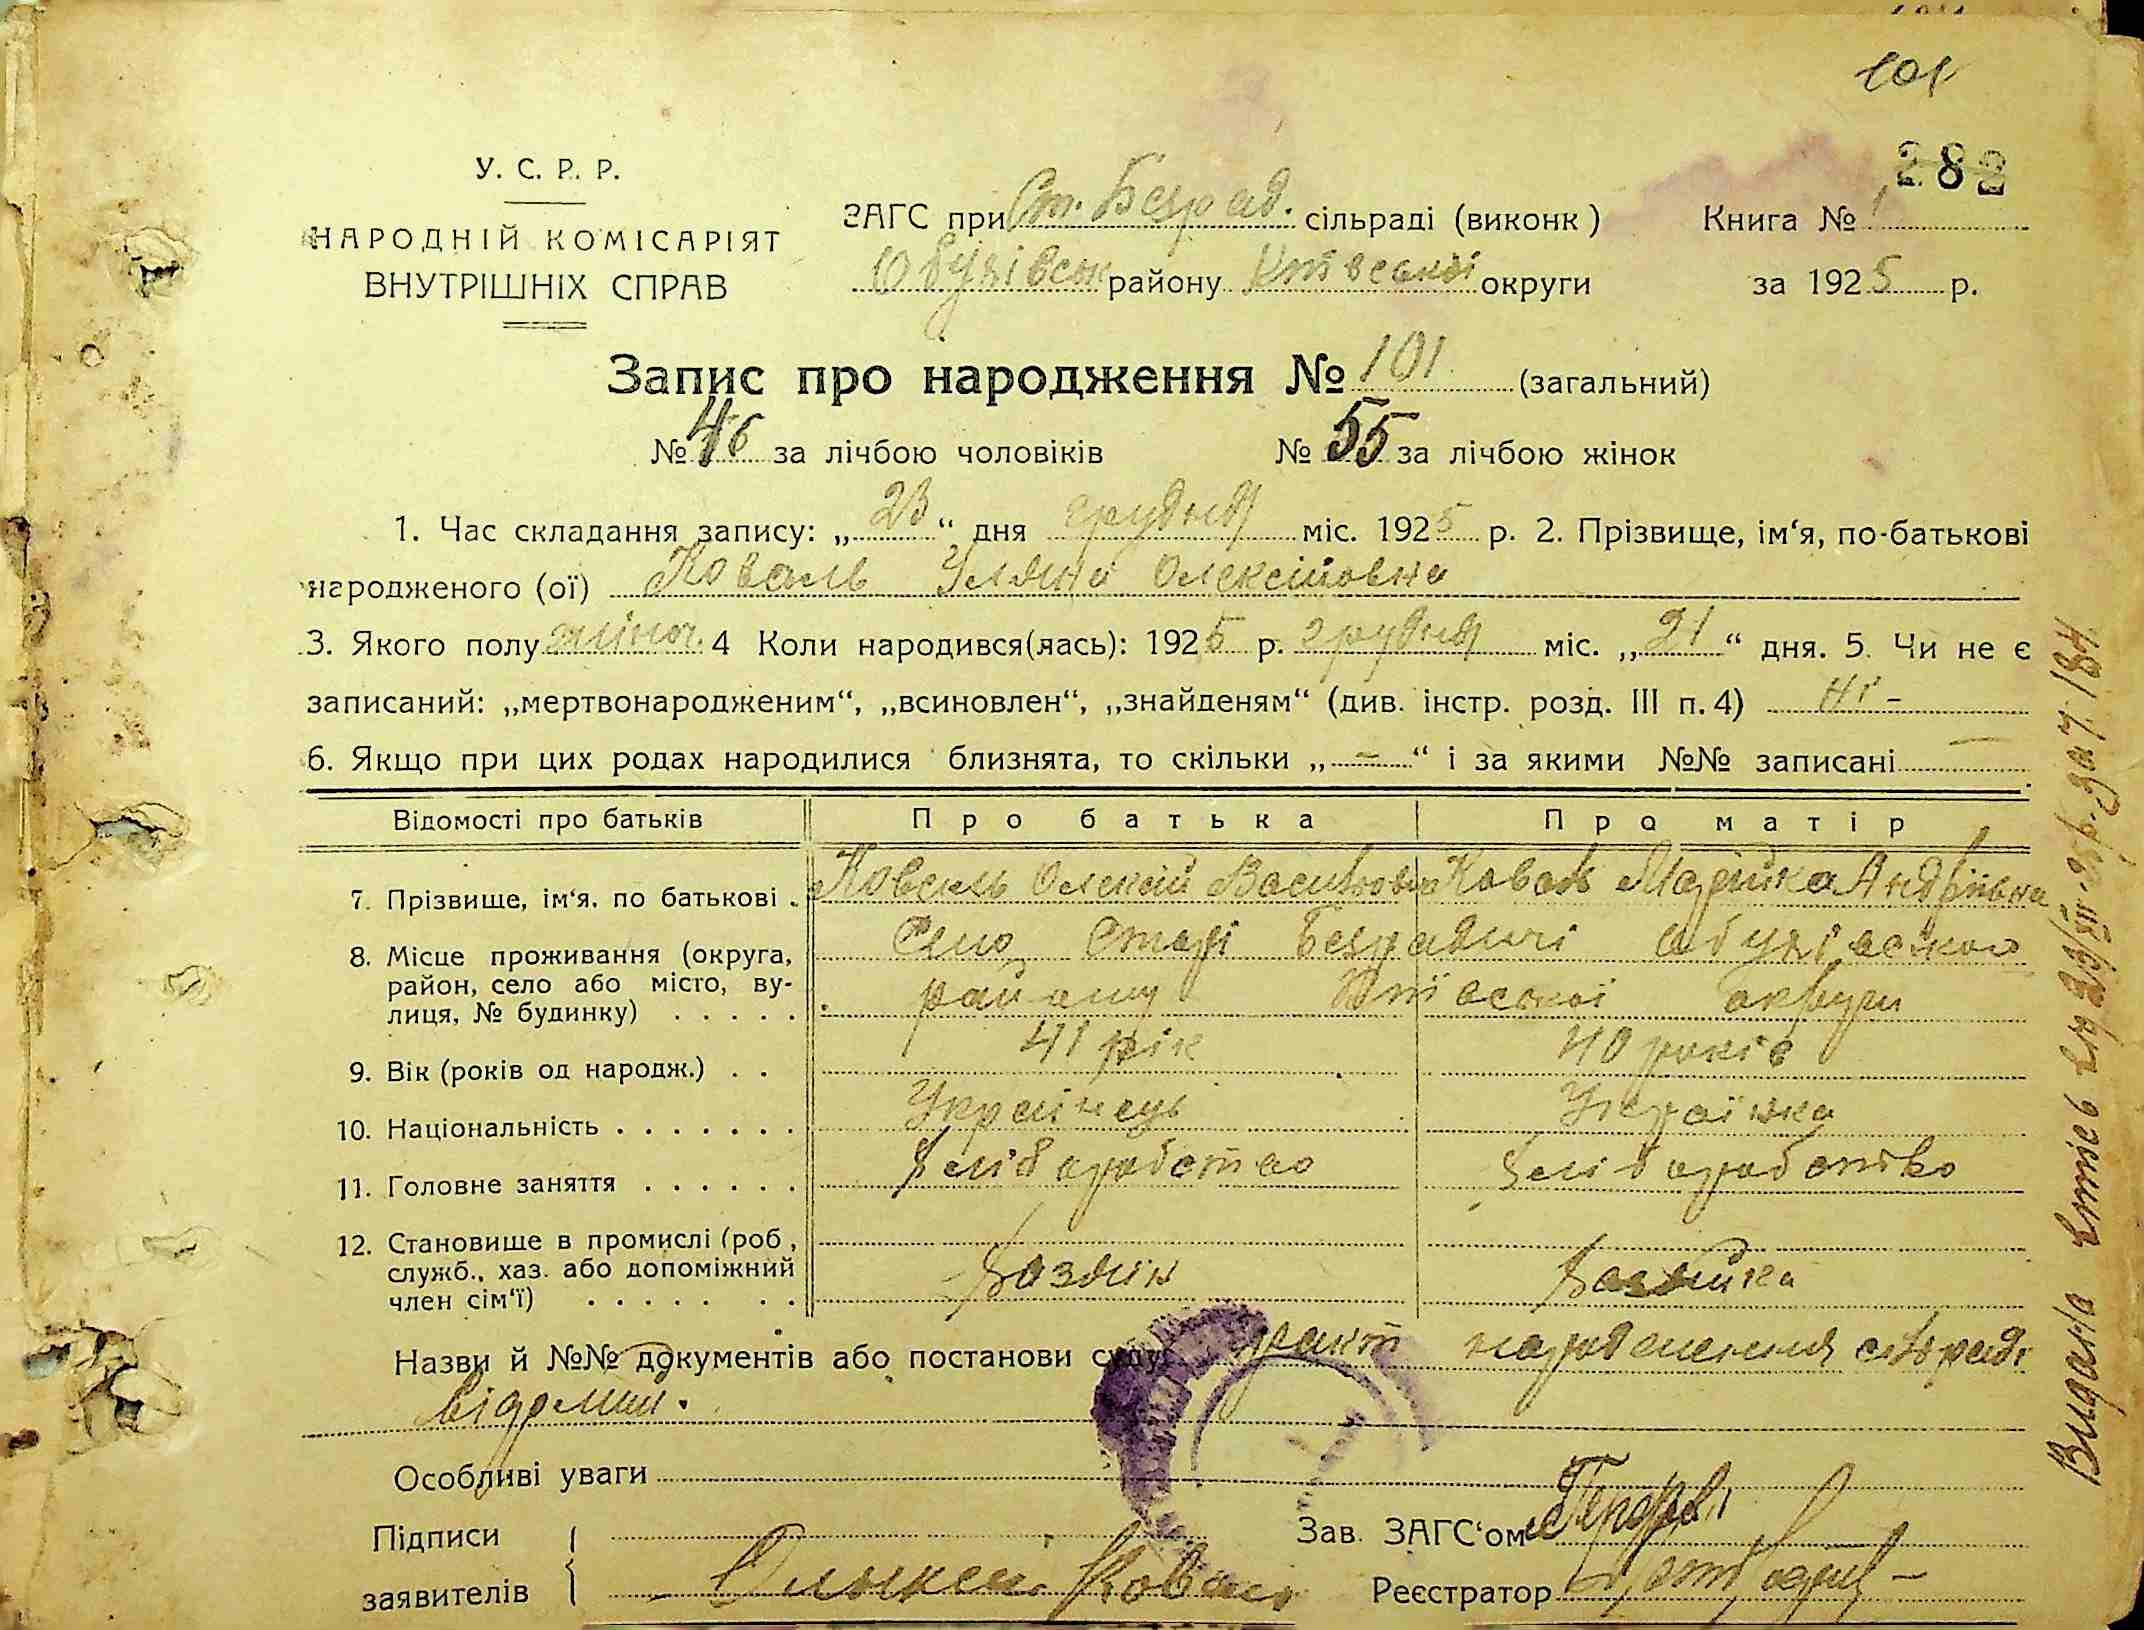 101
282
У. С. Р. Р.
НАРОДНІЙ КОМІСАРІЯТ
ВНУТРІШНІХ СПРАВ
ЗАГС при Ст. Безрад. сільраді (виконк) Книга № 1
Обухівськ району Київської округи за 1925 р.
Запис про народження № 101 (загальний)
№ 46 за лічбою чоловіків № 55 за лічбою жінок
1. Час складання запису: „23“ дня грудня міс. 1925 р. 2. Прізвище, ім‘я, по-батькові
народженого (ої) Коваль Уляна Олексійовна
3. Якого полу жіноч. 4 Коли народився(лась): 1925 р. грудня міс. „21“ дня. 5. Чи не є
записаний: „мертвонародженим“, „всиновлен“, „знайденям“ (див. інстр. розд. III п. 4) ні -
6. Якщо при цих родах народилися близнята, то скільки „-“ і за якими №№ записані —
Відомості про батьків Про батька Про матір
7. Прізвище, ім‘я. по батькові . Коваль Олексій Васильович Коваль Марійка Андріївна
8. Місце проживання (округа, район, село або місто, ву- лиця, № будинку) . . . . . Село Старі Безрадичі обухівського
району Київської округи
9. Вік (років од народж.) . . 41 рік 40 років
10. Національність . . . . . . . Українець Українка
11. Головне заняття . . . . . . Хліборобство Хліборобство
12. Становище в промислі (роб, служб., хаз. або допоміжний член сім‘ї) . . . . . . . Хазяїн Хазяйка
Назви й №№ документів або постанови суду факт народження сільраді
відомий.
Особливі уваги
Підписи Зав. ЗАГС‘ом
заявителів Олексій Коваль Реєстратор
Видана